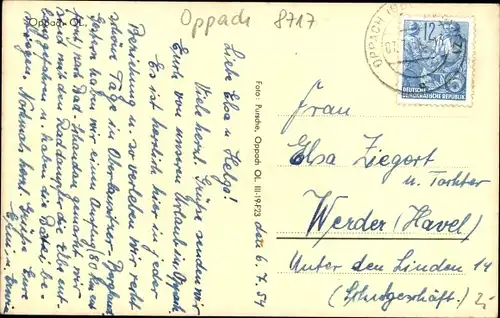 Oppach 8717
Oppach OL.
Liebe Elsa u. Helga!
Viele herzl. Grüße senden wir
Euch von unserem Urlaub in Oppach
Es ist herrlich hier in jeder
Beziehung u. so verleben wir recht
schöne Tage in Oberlausitzer Bergland
Gestern haben wir einen Ausflug 80 km
nach Bad-Schandau gemacht mit
sind mit den Raddampfer die Elbe ent-
lang gefahren u. haben die Bastei be-
stiegen. Nochmals herzl. Grüße Eure
Erwin
den 6.7.54
Foto: Pursche, Oppach OL. III-19-F23
OPPACH
12
DEUTSCHE
DEMOKRATISCHE REPUBLIK
Frau
Elsa Ziegert
u. Tochter
Werder (Havel)
Unter den Linden 14
(Schuhgeschäft)
2,-